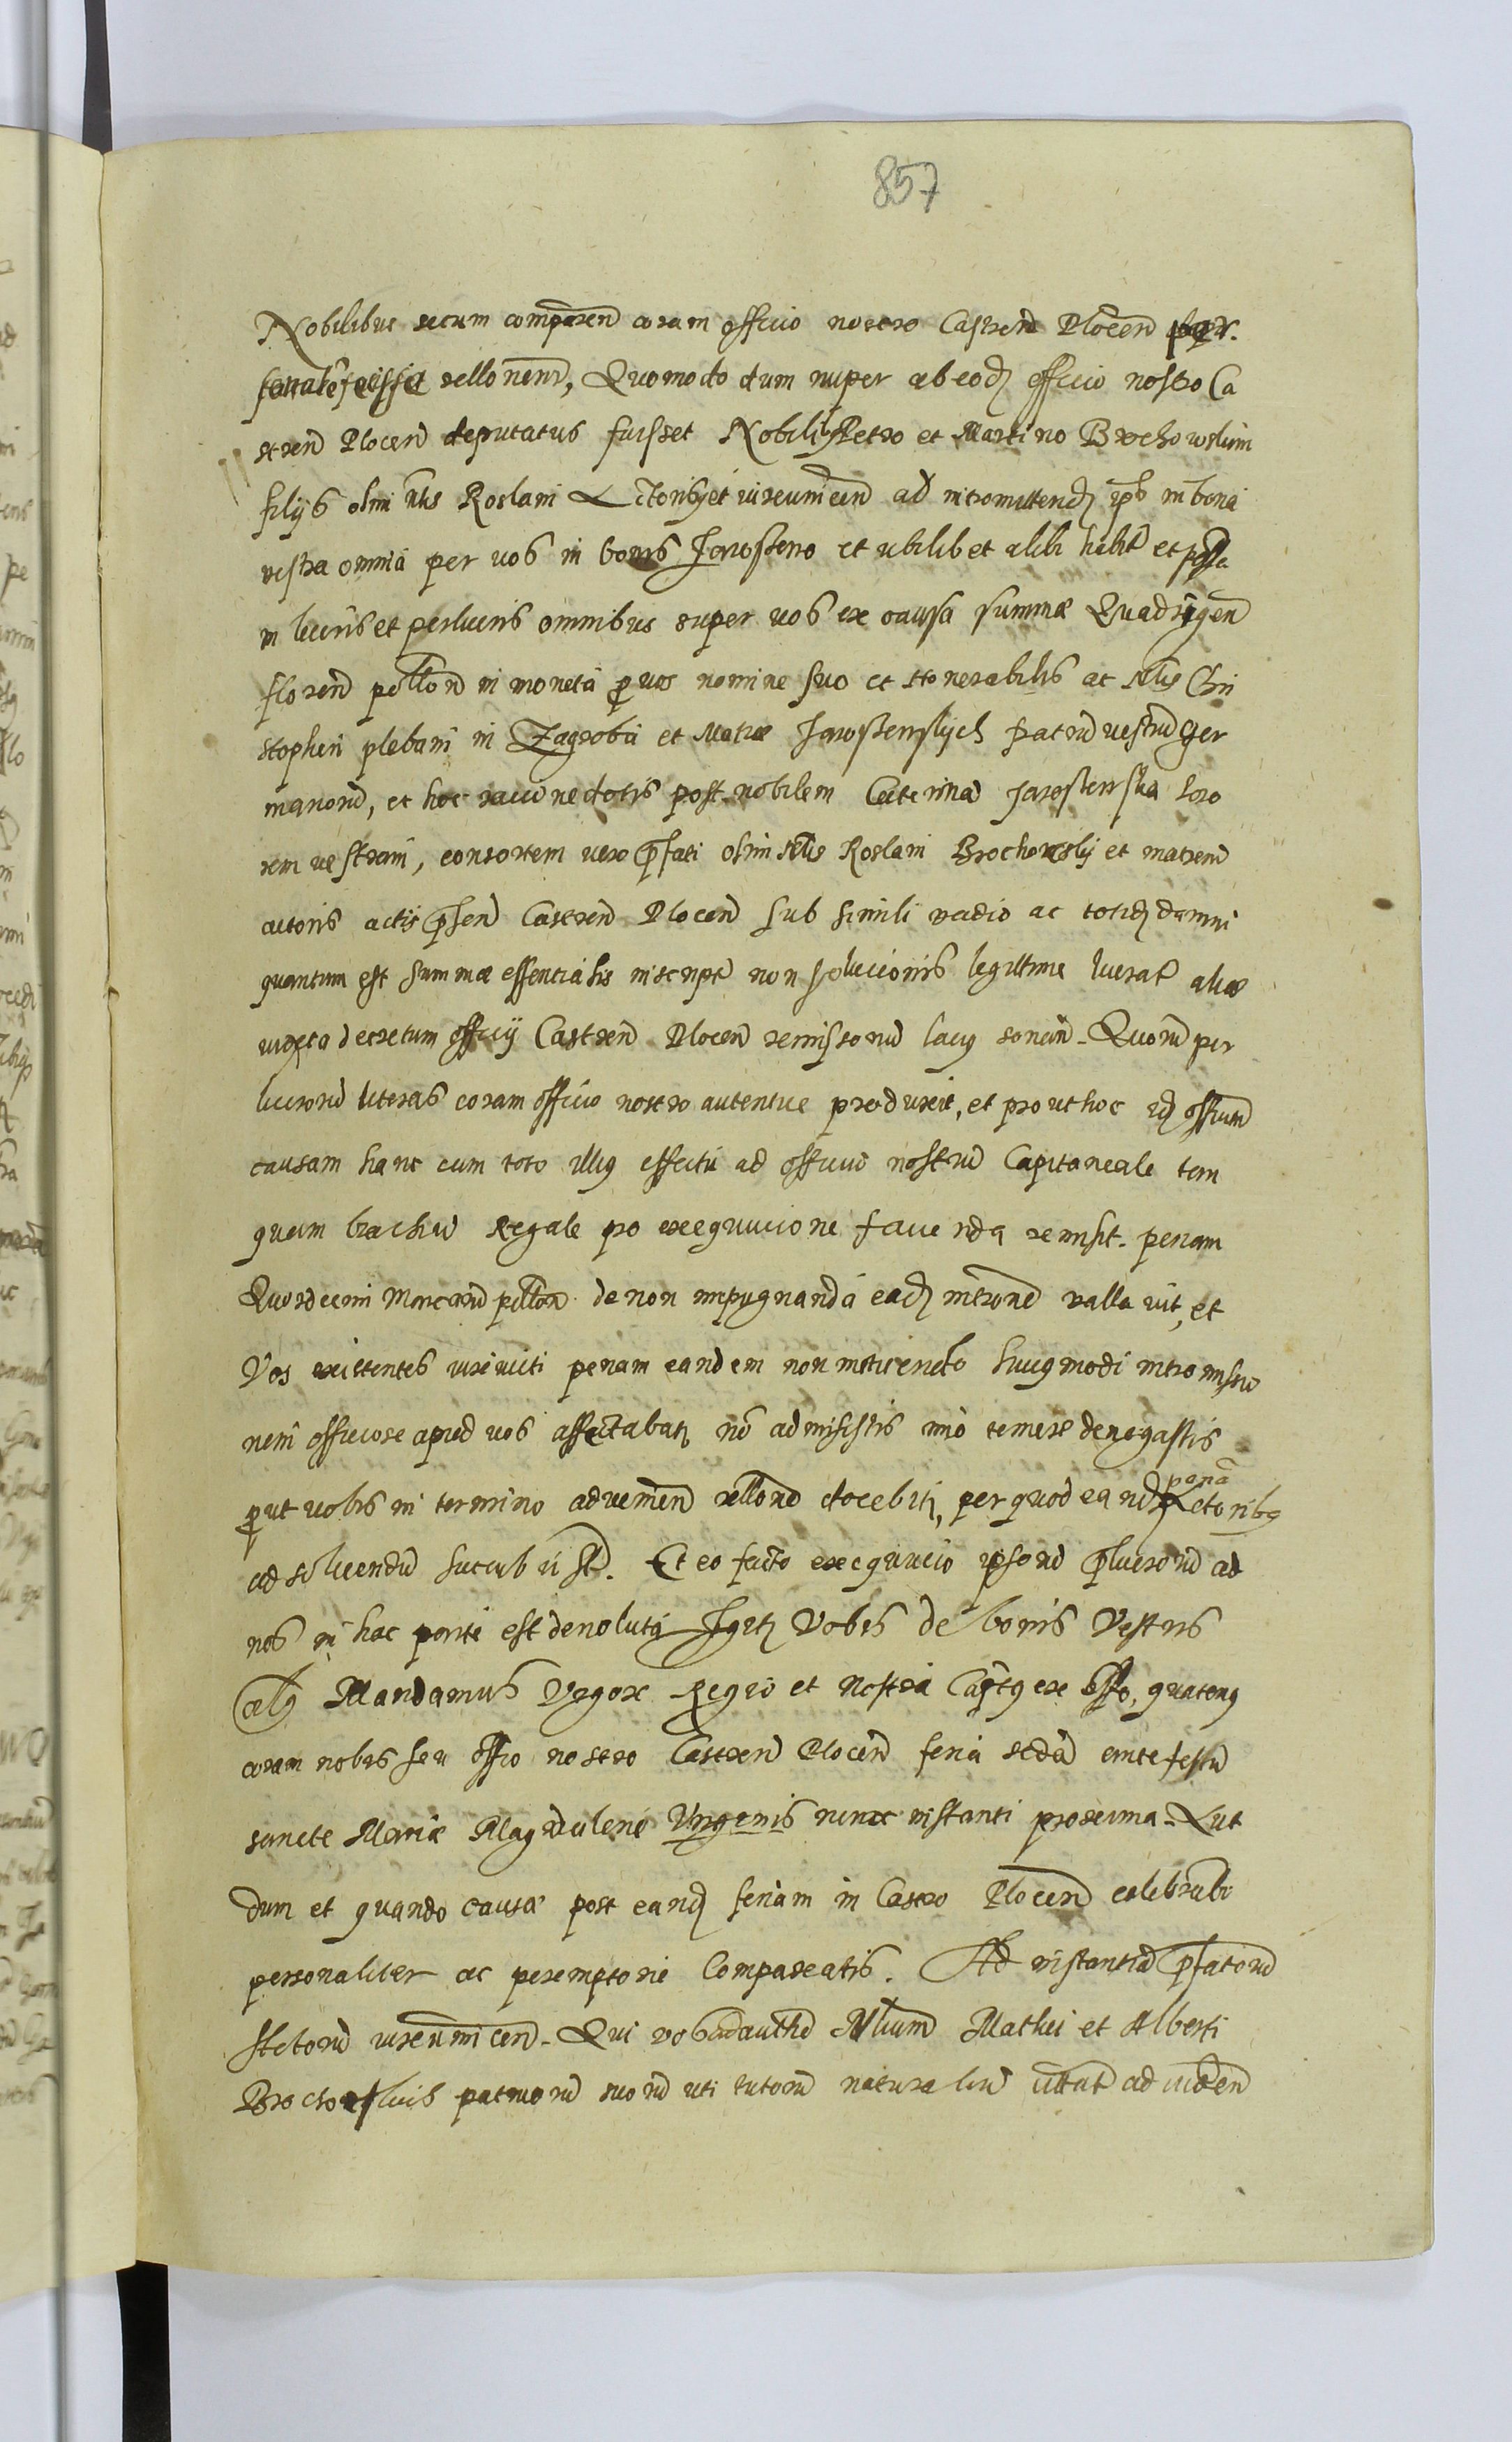 857
Nobilibus secum comparen coram officio nostro Castren Plocen per.
sonalr fecisse rellonem, Quomodo dum nuper ab eod officio nostro Ca
stren Plocen deputatus fuisset Nobilib Petro et Martino Brochowskim
filijs olim nlis Roslani Actoribq et iureuincen ad intromittend ipsos in bona
vestra omnia per uos in bonis Jarosseno et ubilibet alibi habit et possa
in lucris et perlucris omnibus super uos ex causa summæ Quadrigen
floren pollon in moneta p uos nomine suo et Honerabilis ac Nlis Chri
stopheri plebani in Zagroba et Mathæ Jarossenskych fratrum vestrum Ger
manorum, et hoc racione dotis post nobilem Caterinam Jarossenska soro
rem vestram, consortem vero pfati olim Nlis Roslani Brochowskj et matrem
actoris actis psen Castren Plocen sub simili vadio ac totid damni
quantum est summæ essentialis inscript non solucionis legittime lucrat aliæ
iuxta decretum officij Castren Plocen remissorium lacq sonan. Quorum per
lucrorum literas coram officio nostro autentice produxit, et prout hoc id officium
causam hanc cum toto illiq effectu ad officium nostrum Capitaneale tem
quam brachium Regale pro exequucione facienda remisit. penam
Quordecim Marcarum pollon de non impugnanda ead introme valla uit, et
Vos existentes iureuicti penam eandem non metuendo huiqmodi intromissio
nem officiose apud vos affectabat no admisistis imo temere denegastis
put vobis in termino aduenien rellone docebit, per quod eand penã Actoribq
ad soluendum succubuistis. Et eo facto exequucio ipsorum plucrorum ad
nos in hac parte est deuoluta Igitr Vobis de bonis Vestris
Mandamus Vigore Regio et Nostra Captq ex offo, quatenq
coram nobis seu offio nostro Castren Plocen feria scda ante festum
sancte Mariæ Magdalene Virginis nunc instanti proxima. Aut
dum et quando causæ post eand feriam in Castro Plocen celebrabr
personaliter ac peremptorie Compareatis. Ad instantiam pfatorum
Actorum iureuincen. Qui vos ad auth Nlium Mathei et Alberti
patruorum suorum uti tutorum naturalium citat ad viden